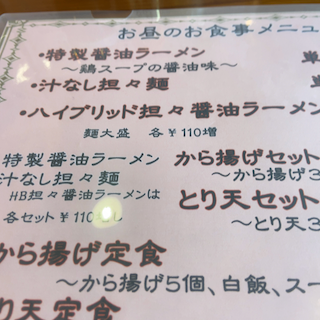 お昼のお食事メニュ
・特製醤油ラーメン 単
〜鶏スープの醤油味〜
・汁なし担々麺
・ハイブリッド担々醤油ラーメン
麺大盛 各￥110増
特製醤油ラーメン から揚げセット
汁なし担々麺 〜から揚げ3
HB担々醤油ラーメンは とり天セット
各セット￥110 〜とり天3
から揚げ定食
〜から揚げ5個、白飯、スー
り天定食